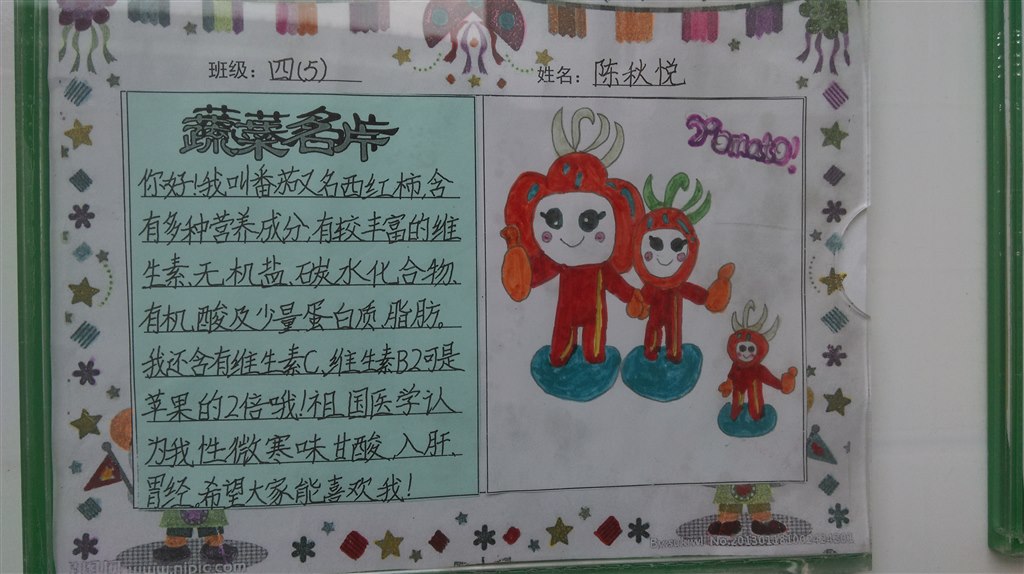 班级：四(5)
姓名：陈秋悦
蔬菜名片
你好!我叫番茄又名西红柿,含
有多种营养成分,有较丰富的维
生素、无机盐、碳水化合物、
有机酸及少量蛋白质、脂肪。
我还含有维生素C、维生素B2可是
苹果的2倍哦!祖国医学认
为我性微寒味甘酸,入肝、
胃经。希望大家能喜欢我!
Tomato!
www.nipic.com